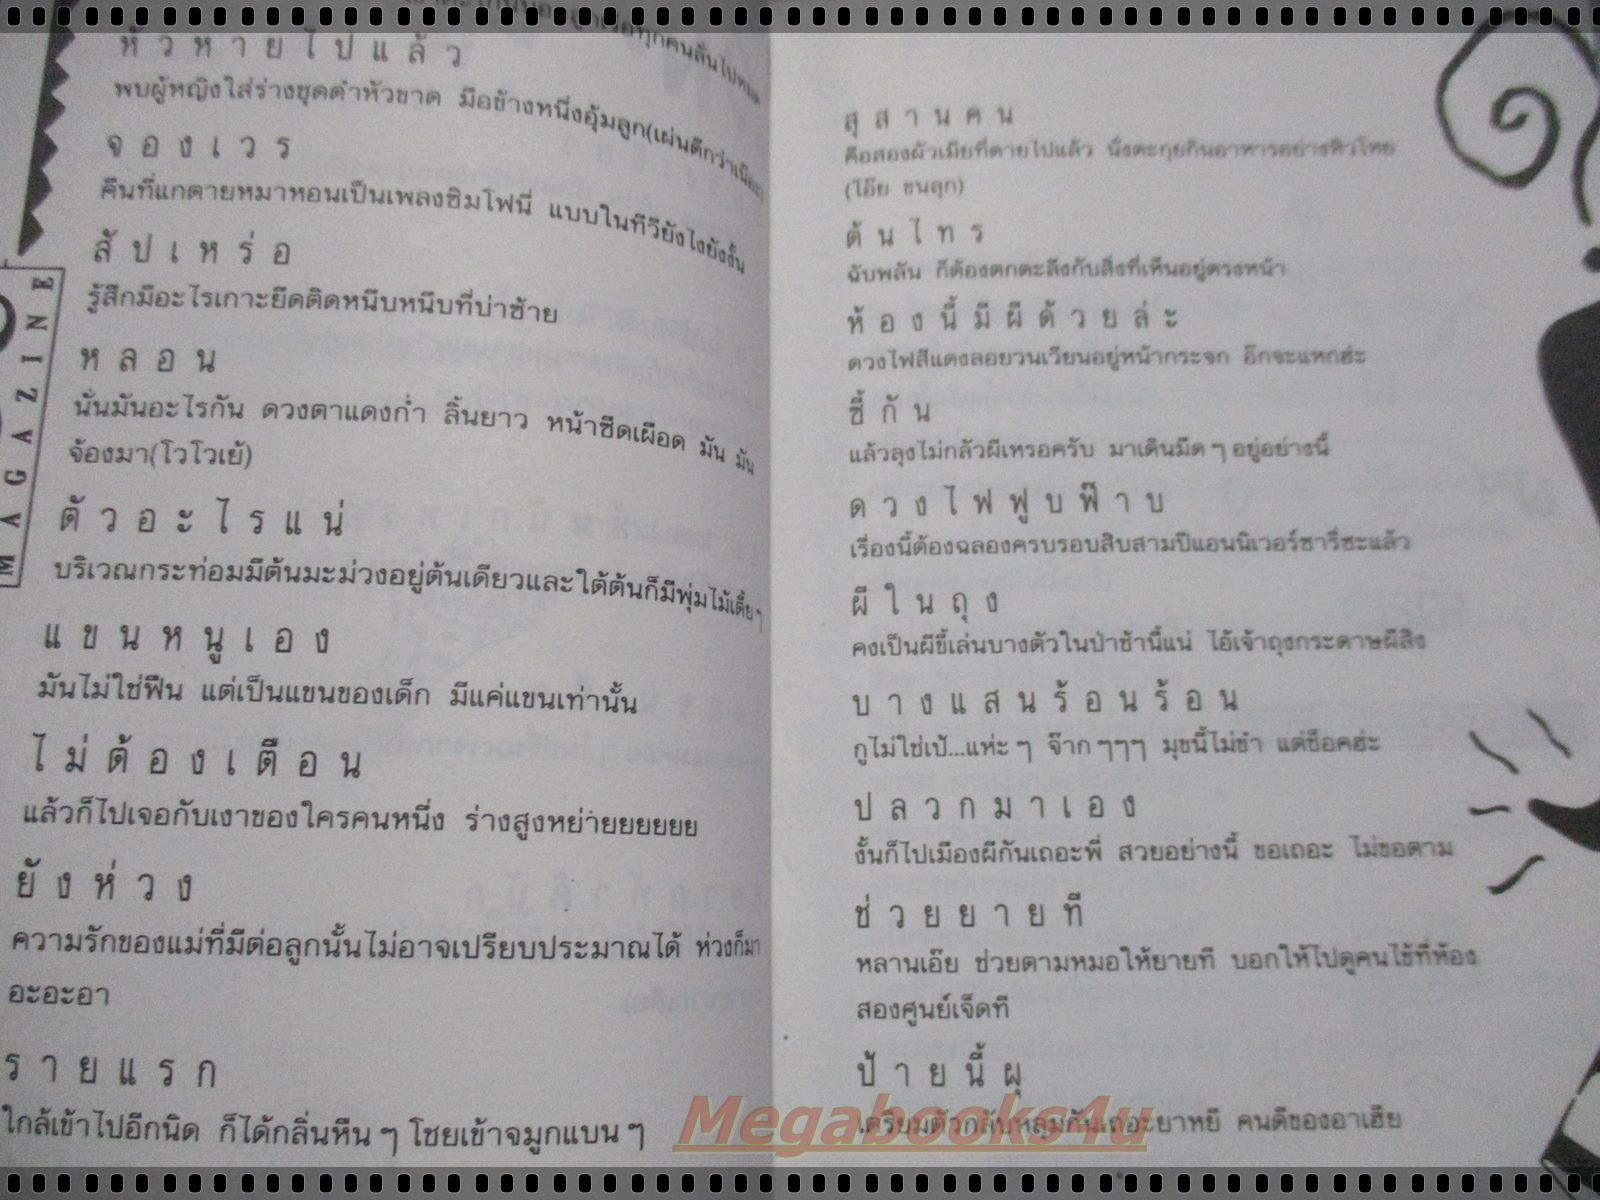 หัวหายไปแล้ว
พบผู้หญิงใส่ร่างชุดดำหัวขาด มือข้างหนึ่งอุ้มลูก(เผ่นดีกว่าเนี่ยะ)
จองเวร
คืนที่แกตายหมาหอนเป็นเพลงซิมโฟนี่ แบบในทีวียังไงยังงั้น
สัปเหร่อ
รู้สึกมีอะไรเกาะยึดติดหนึบหนึบที่บ่าซ้าย
หลอน
นั่นมันอะไรกัน ดวงตาแดงก่ำ ลิ้นยาว หน้าซีดเผือด มัน มัน
จ้องมา(โวโวเย้)
ตัวอะไรแน่
บริเวณกระท่อมมีต้นมะม่วงอยู่ต้นเดียวและใต้ต้นก็มีพุ่มไม้เตี้ยๆ
แขนหนูเอง
มันไม่ใช่ฟืน แต่เป็นแขนของเด็ก มีแค่แขนเท่านั้น
ไม่ต้องเตือน
แล้วก็ไปเจอกับเงาของใครคนหนึ่ง ร่างสูงหย่ายยยยยย
ยังห่วง
ความรักของแม่ที่มีต่อลูกนั้นไม่อาจเปรียบประมาณได้ ห่วงก็มา
อะอะอา
รายแรก
ใกล้เข้าไปอีกนิด ก็ได้กลิ่นหืนๆ โชยเข้าจมูกแบนๆ
สุสานคน
คือสองผัวเมียที่ตายไปแล้ว นั่งตะกุยกินอาหารอย่างหิวโหย
(โอ๊ย ขนลุก)
ต้นไทร
ฉับพลัน ก็ต้องตกตะลึงกับสิ่งที่เห็นอยู่ตรงหน้า
ห้องนี้มีผีด้วยล่ะ
ดวงไฟสีแดงลอยวนเวียนอยู่หน้ากระจก อีกจะแหกฮ่ะ
ซี้กัน
แล้วลุงไม่กลัวผีเหรอครับ มาเดินมืดๆอยู่อย่างนี้
ดวงไฟฟูบฟ๊าบ
เรื่องนี้ต้องฉลองครบรอบสิบสามปีแอนนิเวอร์ซารี่ซะแล้ว
ผีในถุง
คงเป็นผีขี้เล่นบางตัวในป่าช้านี้แน่ ไอ้เจ้าถุงกระดาษผีสิง
บางแสนร้อนร้อน
กูไม่ใช่เป้...แห่ะๆ จ๊ากๆๆๆ มุขนี้ไม่ขำ แต่ช็อคฮ่ะ
ปลวกมาเอง
งั้นก็ไปเมืองผีกันเถอะพี่ สวยอย่างนี้ ขอเถอะ ไม่ขอตาม
ช่วยยายที
หลานเอ๊ย ช่วยตามหมอให้ยายที บอกให้ไปดูคนไข้ที่ห้อง
สองศูนย์เจ็ดที
ป้ายนี้ผุ
เตรียมตัวกลับหลุมกันเถอะยาหยี คนดีของอาเฮีย
MAGAZINE
Megabooks4u